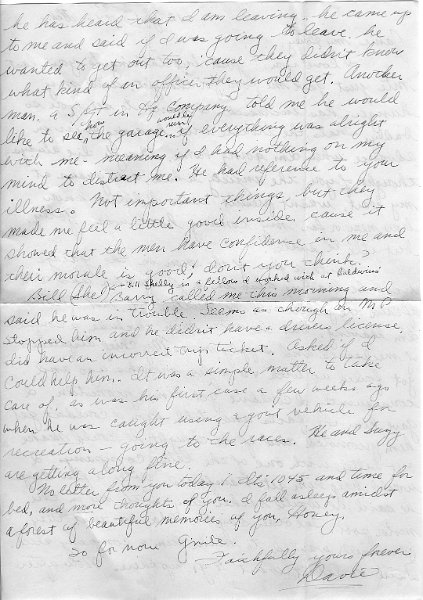 he has heard that I am leaving, he came up
to me and said if I was going to leave, he
wanted to get out too, 'cause they didn't know
what kind of an officer they would get. Another
man, a S/Sgt in Hq Company, told me he would
like to see how the garage would be run if everything was alright
with me - meaning if I had nothing on my
mind to distract me. He had reference to your
illness. Not important things, but they
made me feel a little good inside cause it
showed that the men have confidence in me and
their morale is good, don't you think?
Bill Shelly is a fellow I worked with at Baldwins
Bill (She) Barry called me this morning and
said he was in trouble. Seems as though an M.P.
stopped him and he didn't have a drivers license,
did have an incorrect trip ticket. Asked if I
could help him. It was a simple matter to take
care of, as was his first case a few weeks ago
when he was caught using a govt vehicle for
recreation - going to the races. He and Suzy
are getting along fine.
No letter from you today! It's 1045 and time for
bed, and more thoughts of you. I fall asleep amidst
a forest of beautiful memories of you, Honey.
So for now Gnite.
Faithfully yours forever
Dave